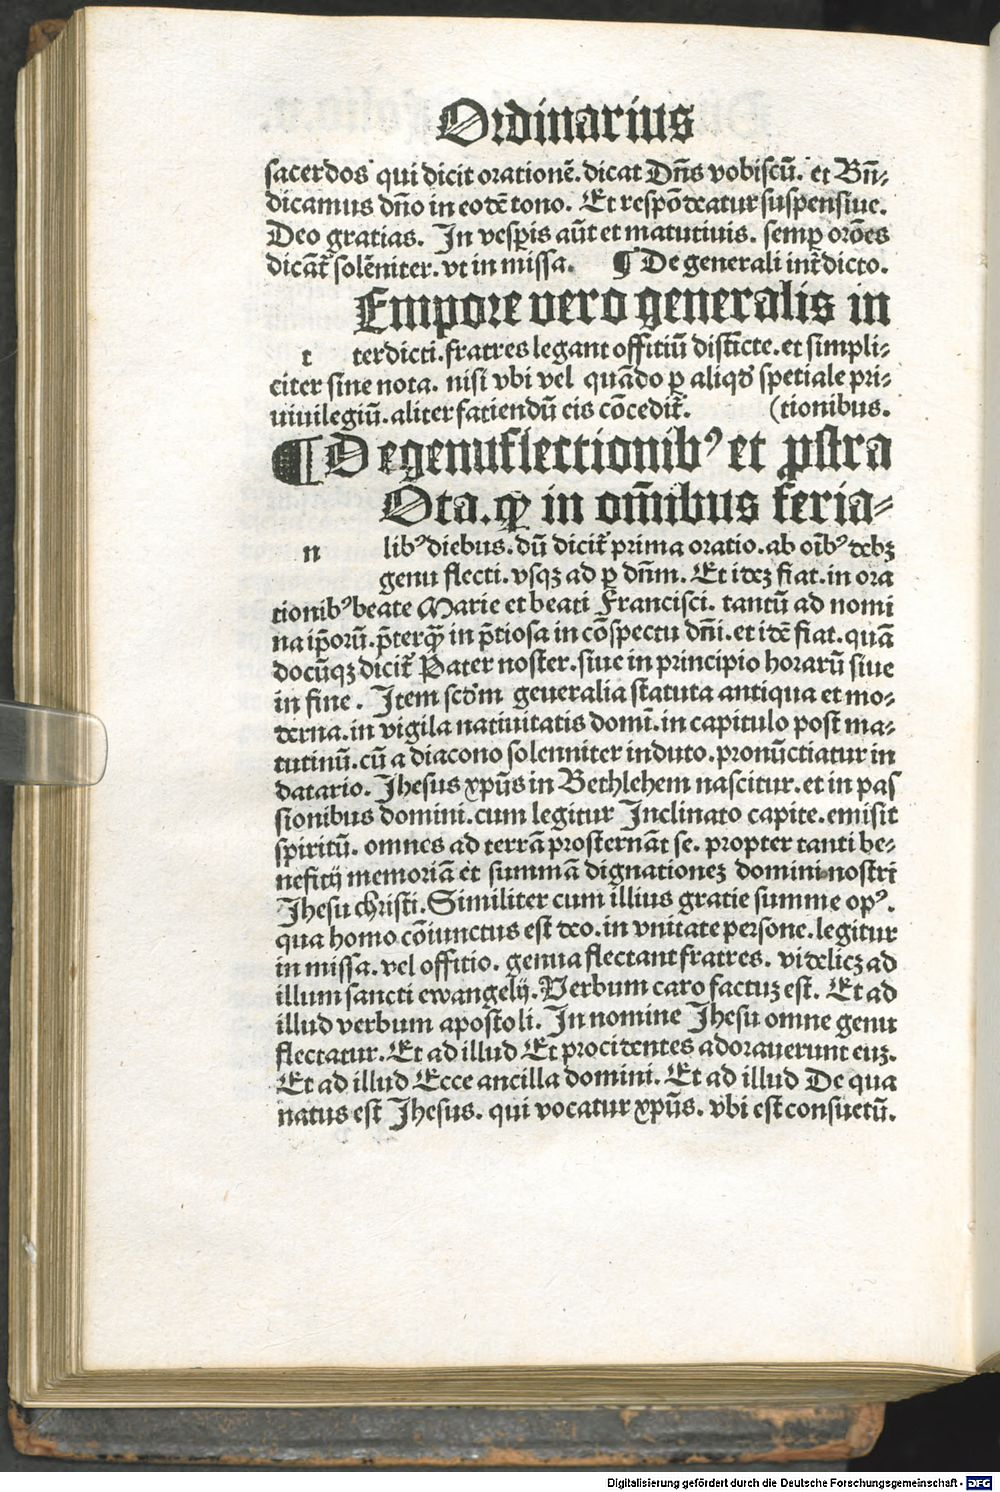 Ordinarius
sacerdos qui dicit orationē. dicat Dn̄s vobiscū. et Bn̄⸗
dicamus dn̄o in eodē tono. Et respōdeatur suspensiue.
Deo gratias. In vesꝑis aūt et matutinis. semꝑ orōes
dicāt᷑ solēniter. vt in missa. ¶ De generali int᷑dicto.
Empore vero generalis in
t terdicti. fratres legant offitiū distīcte. et simpli⸗
citer sine nota. nisi vbi vel quādo ꝑ aliqd̓ spetiale pri⸗
uiuilegiū. aliter fatiendū eis cōcedit᷑. (tionibus.
¶ De genuflectionibꝰ et ꝓstra
Ota. ꝙ in om̄ibus feria⸗
n libꝰ diebus. dū dicit᷑ prima oratio. ab oībꝰ debꝫ
genu flecti. vsqꝫ ad ꝑ dn̄m. Et ideꝫ fiat. in ora
tionibꝰ beate Marie et beati Francisci. tantū ad nomi
na ip̄orū. p̄terꝙ̄ in p̄tiosa in cōspectu dn̄i. et idē fiat. quā
docūqꝫ dicit᷑ Pater noster. siue in principio horarū siue
in fine. Item scd̓m generalia statuta antiqua et mo⸗
derna. in vigila natiuitatis domī. in capitulo post ma⸗
tutinū. cū a diacono solenniter induto. pronūctiatur in
datario. Jhesus xp̄us in Bethlehem nascitur. et in pas
sionibus domini. cum legitur Inclinato capite. emisit
spiritū. omnes ad terrā prosternāt se. propter tanti be⸗
nefitij memoriā et summā dignationeꝫ domini nostri
Jhesu christi. Similiter cum illius gratie summe opꝰ.
qua homo cōiunctus est deo. in vnitate persone. legitur
in missa. vel offitio. genua flectant fratres. videlicꝫ ad
illum sancti ewangelij. Verbum caro factuꝫ est. Et ad
illud verbum apostoli. In nomine Jhesu omne genu
flectatur. Et ad illud Et procidentes adorauerunt euꝫ.
Et ad illud Ecce ancilla domini. Et ad illud De qua
natus est Jhesus. qui vocatur xp̄us. vbi est consuetū.
Digitalisierung gefördert durch die Deutsche Forschungsgemeinschaft - DFG